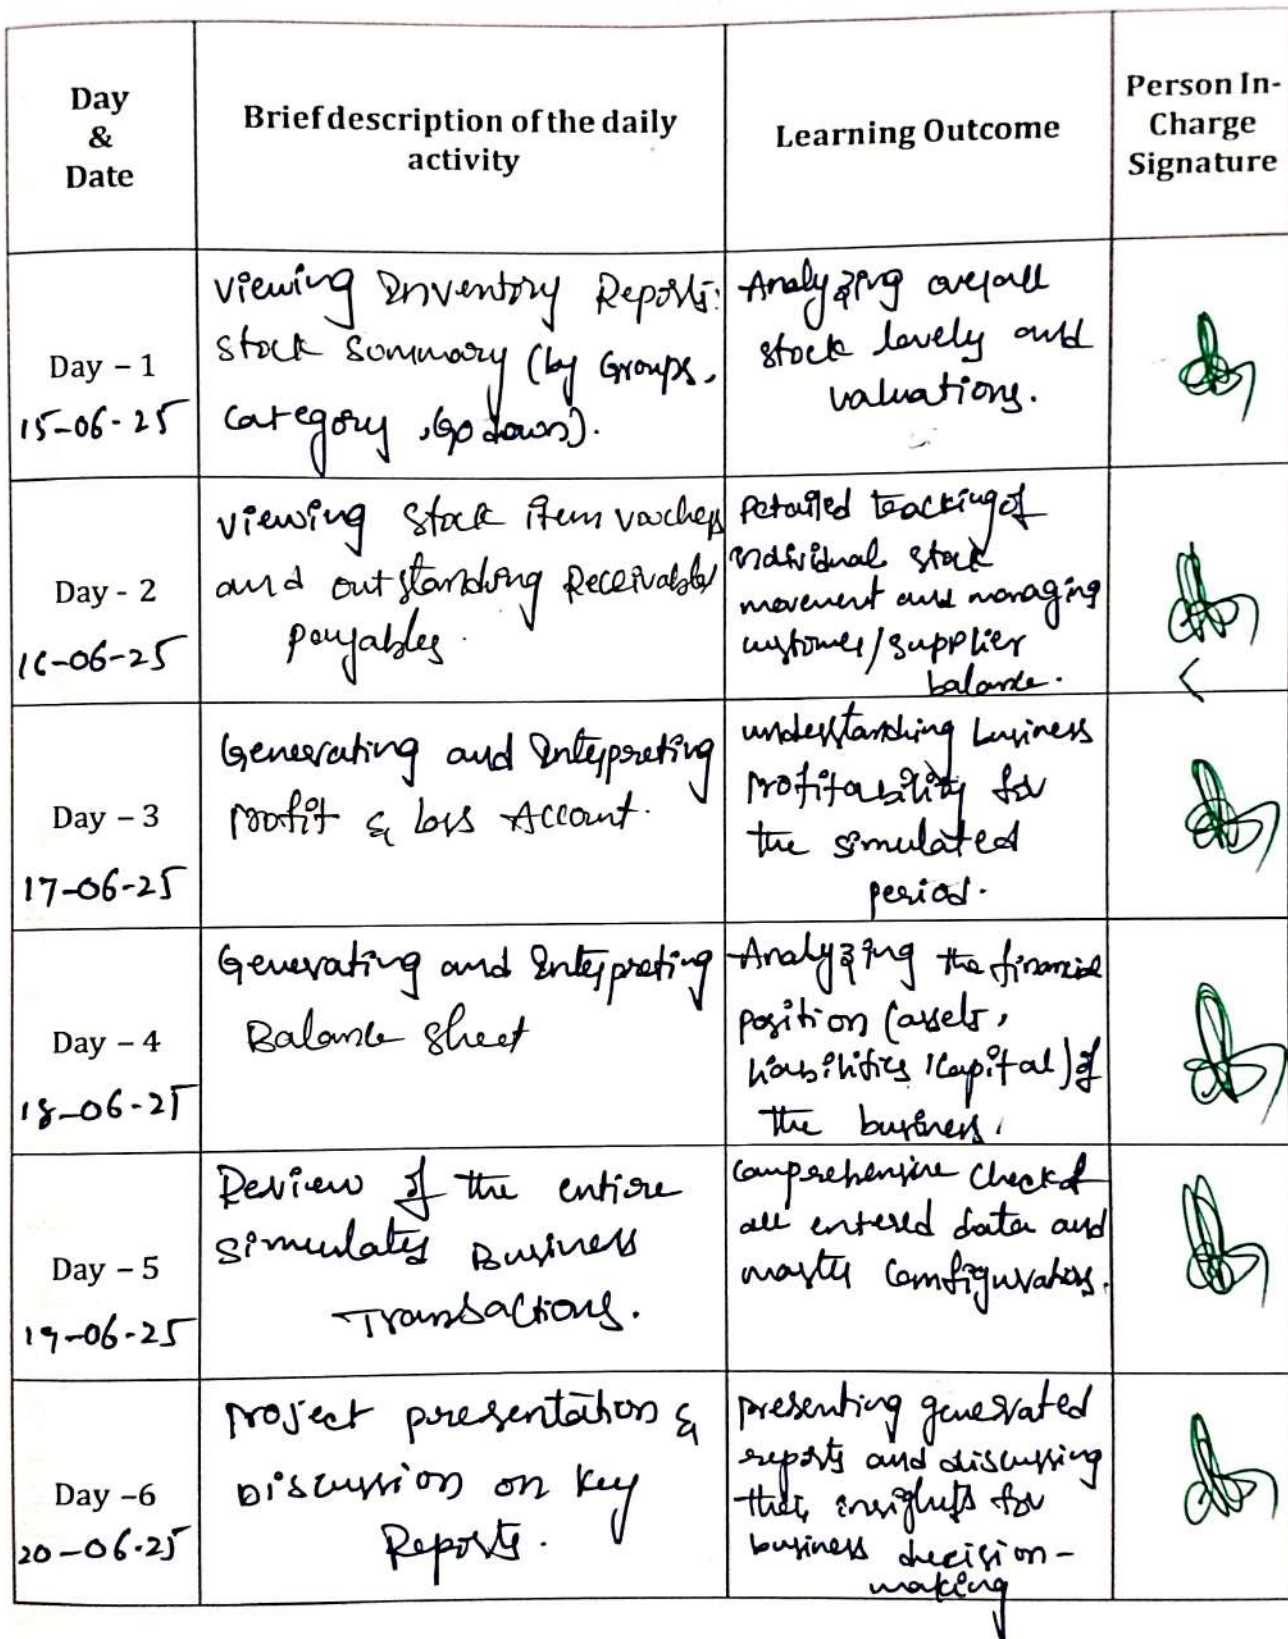 Day
&
Date
Brief description of the daily
activity
Learning Outcome
Person In-
Charge
Signature
Day – 1
15-06-25
Viewing Inventory Reports:
Stock Summary (by Groups,
Category, Godown).
Analyzing overall
stock levels and
valuations.
Day - 2
16-06-25
Viewing Stock item vouchers
and outstanding Receivables/
payables.
Detailed tracking of
individual stock
movement and managing
customer/supplier
balance.
Day – 3
17-06-25
Generating and Interpreting
Profit & Loss Account.
understanding business
profitability for
the simulated
period.
Day – 4
18-06-25
Generating and Interpreting
Balance Sheet
Analyzing the financial
position (assets,
liabilities, capital) of
the business.
Day – 5
19-06-25
Review of the entire
simulates Business
Transactions.
Comprehensive check of
all entered data and
master configurations.
Day –6
20-06-25
Project presentation &
Discussion on key
Reports.
presenting generated
reports and discussing
their insights for
business decision-
making